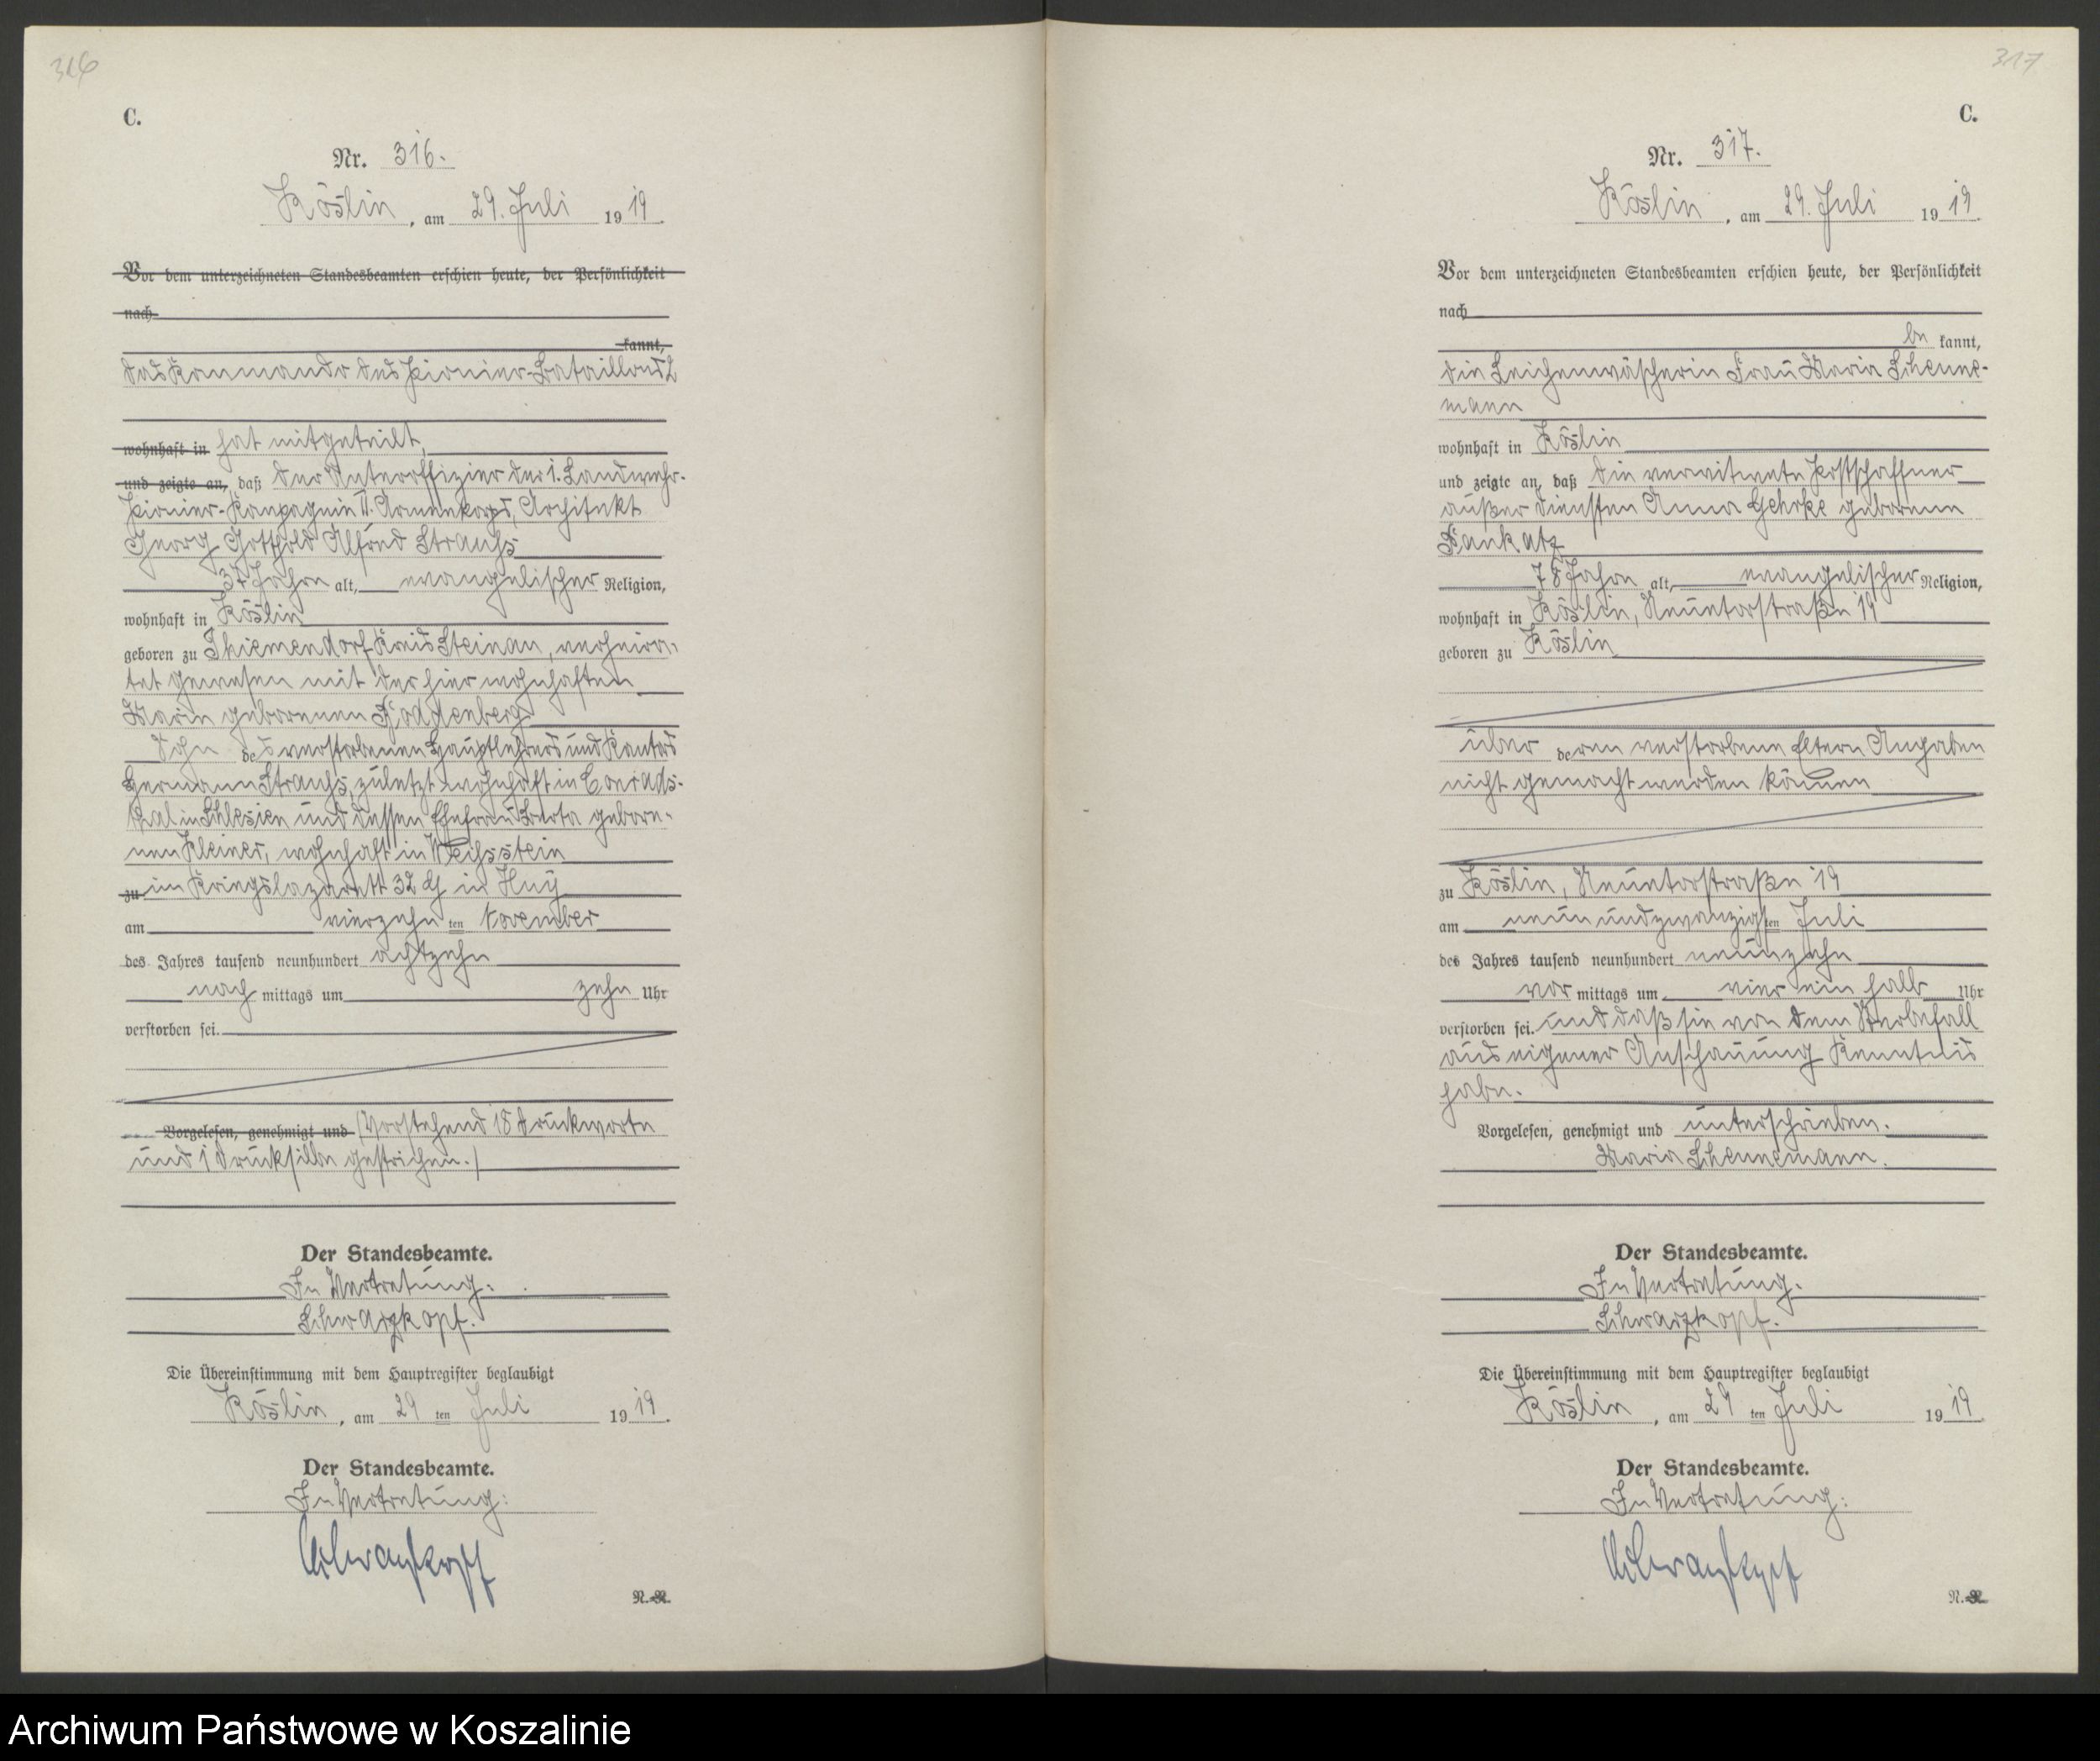 316
C.
Nr. 316.
Köslin, am 29. Juli 1919.
Vor dem unterzeichneten Standesbeamten erschien heute, der Persönlichkeit
nach
kannt,
das Kommando des Pionier-Bataillons 2
wohnhaft in hat mitgeteilt,
und zeigte an, daß der Unteroffizier der 1. Landwehr-
Pionier-Kompagnie II. Armeekorps, Architekt
Georg Gotthold Alfred Strauhs
37 Jahre alt, evangelischer Religion,
wohnhaft in Köslin
geboren zu Thiemendorf Kreis Steinau, verheira-
tet gewesen mit der hier wohnhaften
Marie geborenen
Sohn des verstorbenen Hauptlehrers und Kantors
Hermann Strauhs, zuletzt wohnhaft in Conrads-
thal in Schlesien und dessen Ehefrau Berta gebore-
nen Kleiner, wohnhaft in Weihsstein
zu im Kriegslazarett 32 in Huy
am vierzehnten November
des Jahres tausend neunhundert achtzehn
nachmittags um zehn Uhr
verstorben sei.
Vorgelesen, genehmigt und (Vorstehend 18 Druckworte
und 1 Drucksilbe gestrichen.)
Der Standesbeamte.
In Vertretung:
Schwarzkopf.
Die Übereinstimmung mit dem Hauptregister beglaubigt
Köslin, am 29ten Juli 1919.
Der Standesbeamte.
In Vertretung:
Schwarzkopf
317
C.
Nr. 317.
Köslin, am 29. Juli 1919.
Vor dem unterzeichneten Standesbeamten erschien heute, der Persönlichkeit
nach
bekannt,
die Leichenwäscherin Frau Maria Schenne-
mann
wohnhaft in Köslin
und zeigte an, daß die verwitwete Postschaffner
außer Diensten Anna Gehrke geborene
78 Jahre alt, evangelischer Religion,
wohnhaft in Köslin, Neuetorstraße 19
geboren zu Köslin
über deren verstorbene Eltern Angaben
nicht gemacht werden können
zu Köslin, Neuetorstraße 19
am neunundzwanzigsten Juli
des Jahres tausend neunhundert neunzehn
vormittags um vier ein halb Uhr
verstorben sei. und daß sie von dem Sterbefall
aus eigener Anschauung Kenntnis
habe.
Vorgelesen, genehmigt und unterschrieben.
Maria Schennemann.
Der Standesbeamte.
In Vertretung.
Schwarzkopf.
Die Übereinstimmung mit dem Hauptregister beglaubigt
Köslin, am 29ten Juli 1919.
Der Standesbeamte.
In Vertretung:
Schwarzkopf
Archiwum Państwowe w Koszalinie